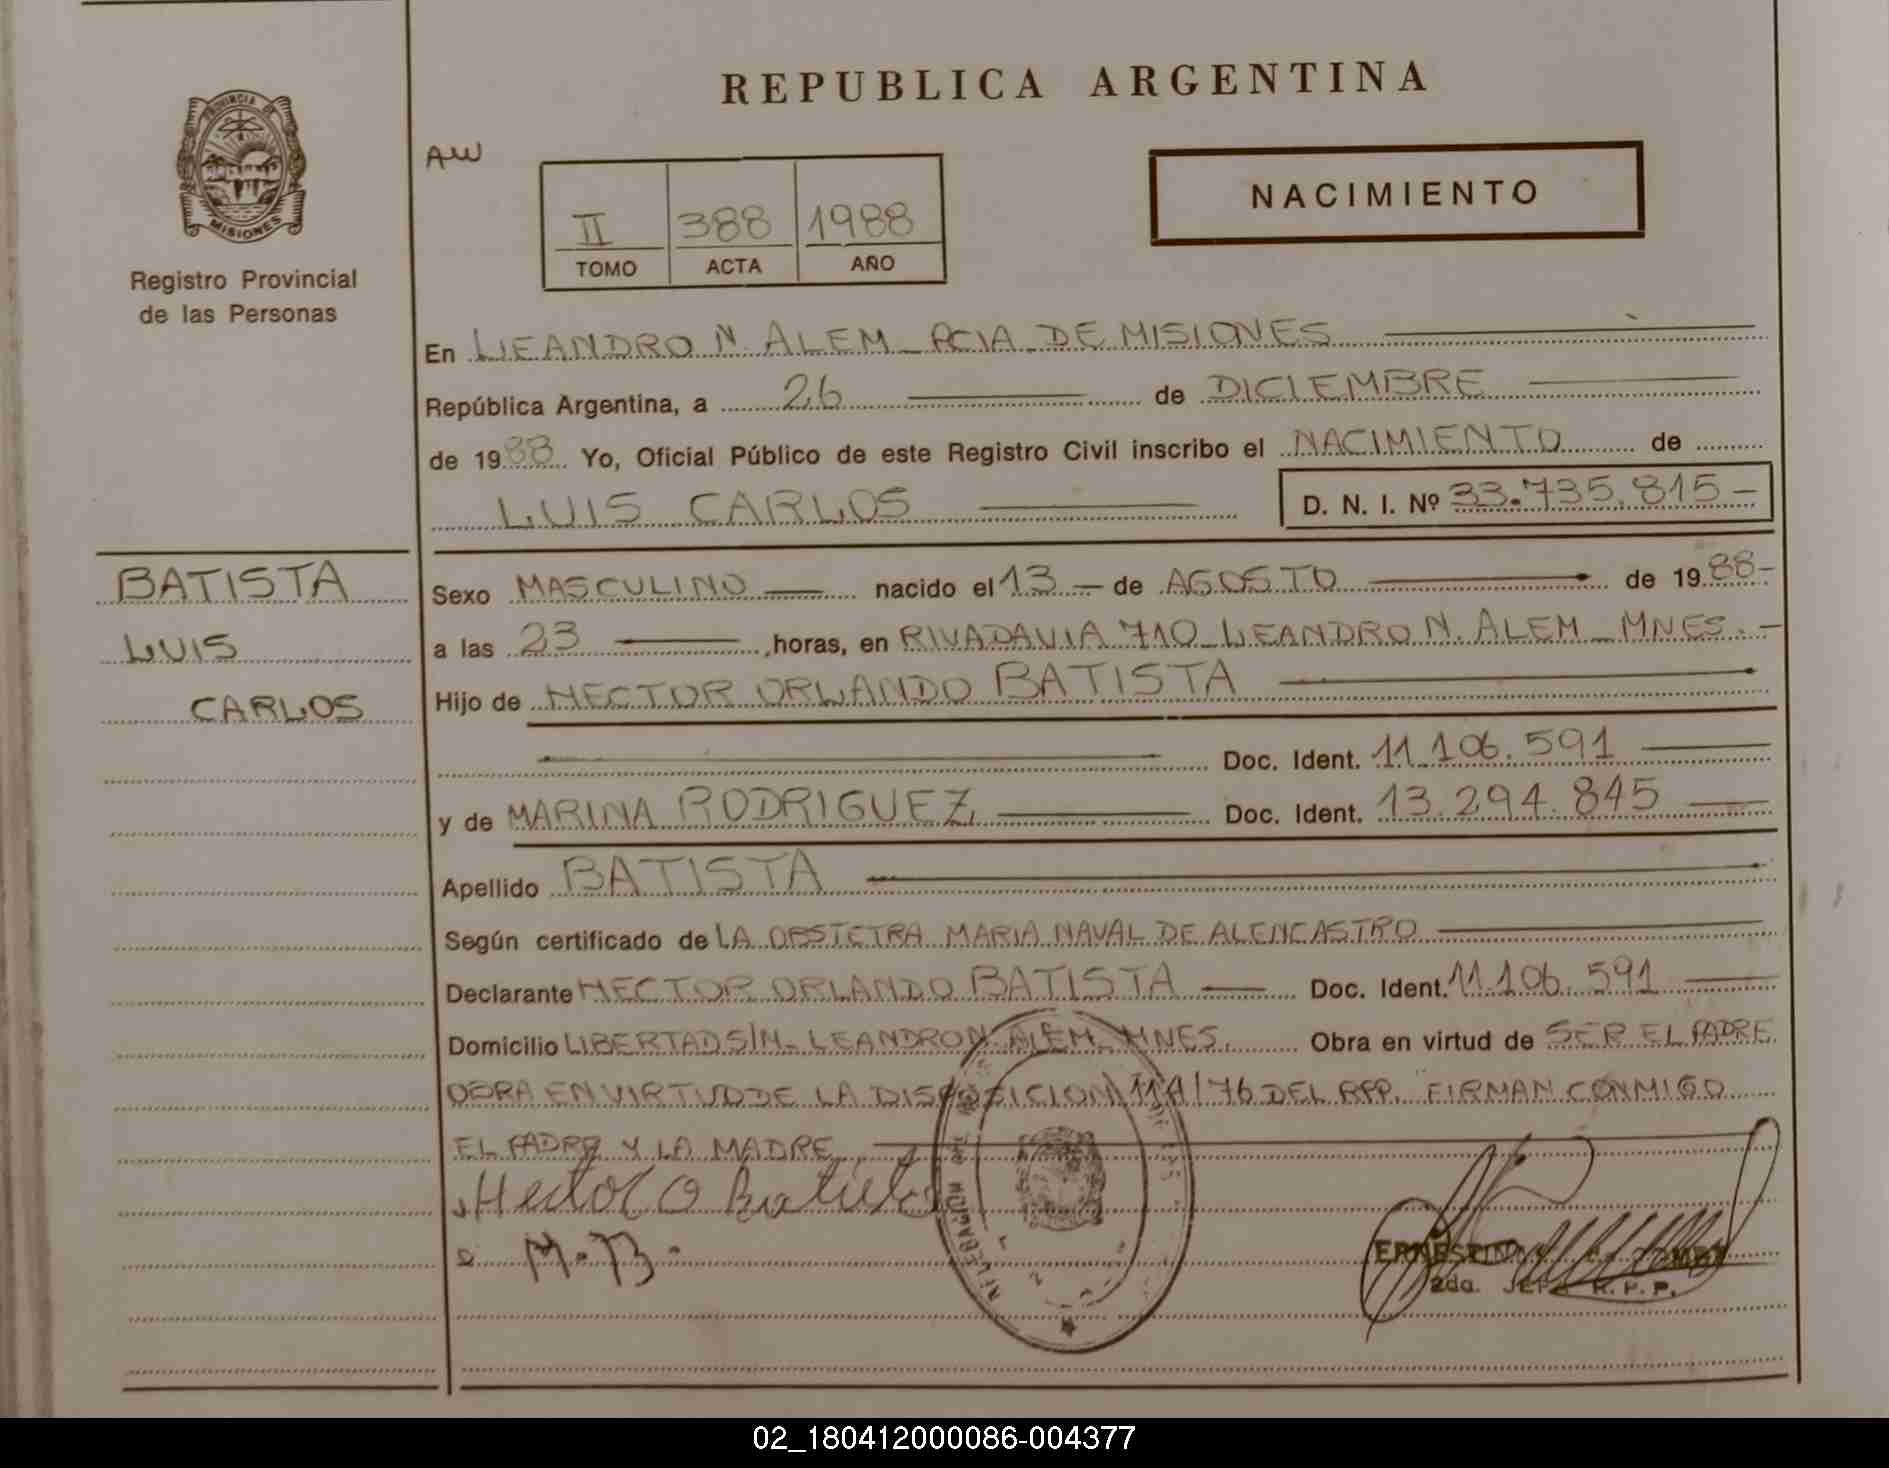 REPUBLICA ARGENTINA
PROVINCIA
MISIONES
Registro Provincial
de las Personas
AW
NACIMIENTO
II 388 1988
TOMO ACTA AÑO
En LEANDRO N. ALEM _ PCIA _ DE MISIONES
República Argentina, a 26 de DICIEMBRE
de 1988 Yo, Oficial Público de este Registro Civil inscribo el NACIMIENTO de
LUIS CARLOS D. N. I. Nº 33.735.815-
BATISTA
LUIS
CARLOS
Sexo MASCULINO nacido el 13 - de AGOSTO de 1988-
a las 23 horas, en RIVADAVIA 710 _ LEANDRO N. ALEM _ MNES. -
Hijo de HECTOR ORLANDO BATISTA
Doc. Ident. 11.106.591
y de MARINA RODRIGUEZ Doc. Ident. 13.294.845
Apellido BATISTA
Según certificado de LA OBSTETRA MARIA NAVAL DE ALENCASTRO
Declarante HECTOR ORLANDO BATISTA Doc. Ident. 11.106.591
Domicilio LIBERTAD S/N _ LEANDRO N. ALEM _ MNES. Obra en virtud de SER EL PADRE
OBRA EN VIRTUD DE LA DISPOSICION 114/76 DEL RPP. FIRMAN CONMIGO
EL PADRE Y LA MADRE
Hector O Batista
M.B.
2da. JEFA R.P.P.
02_180412000086-004377